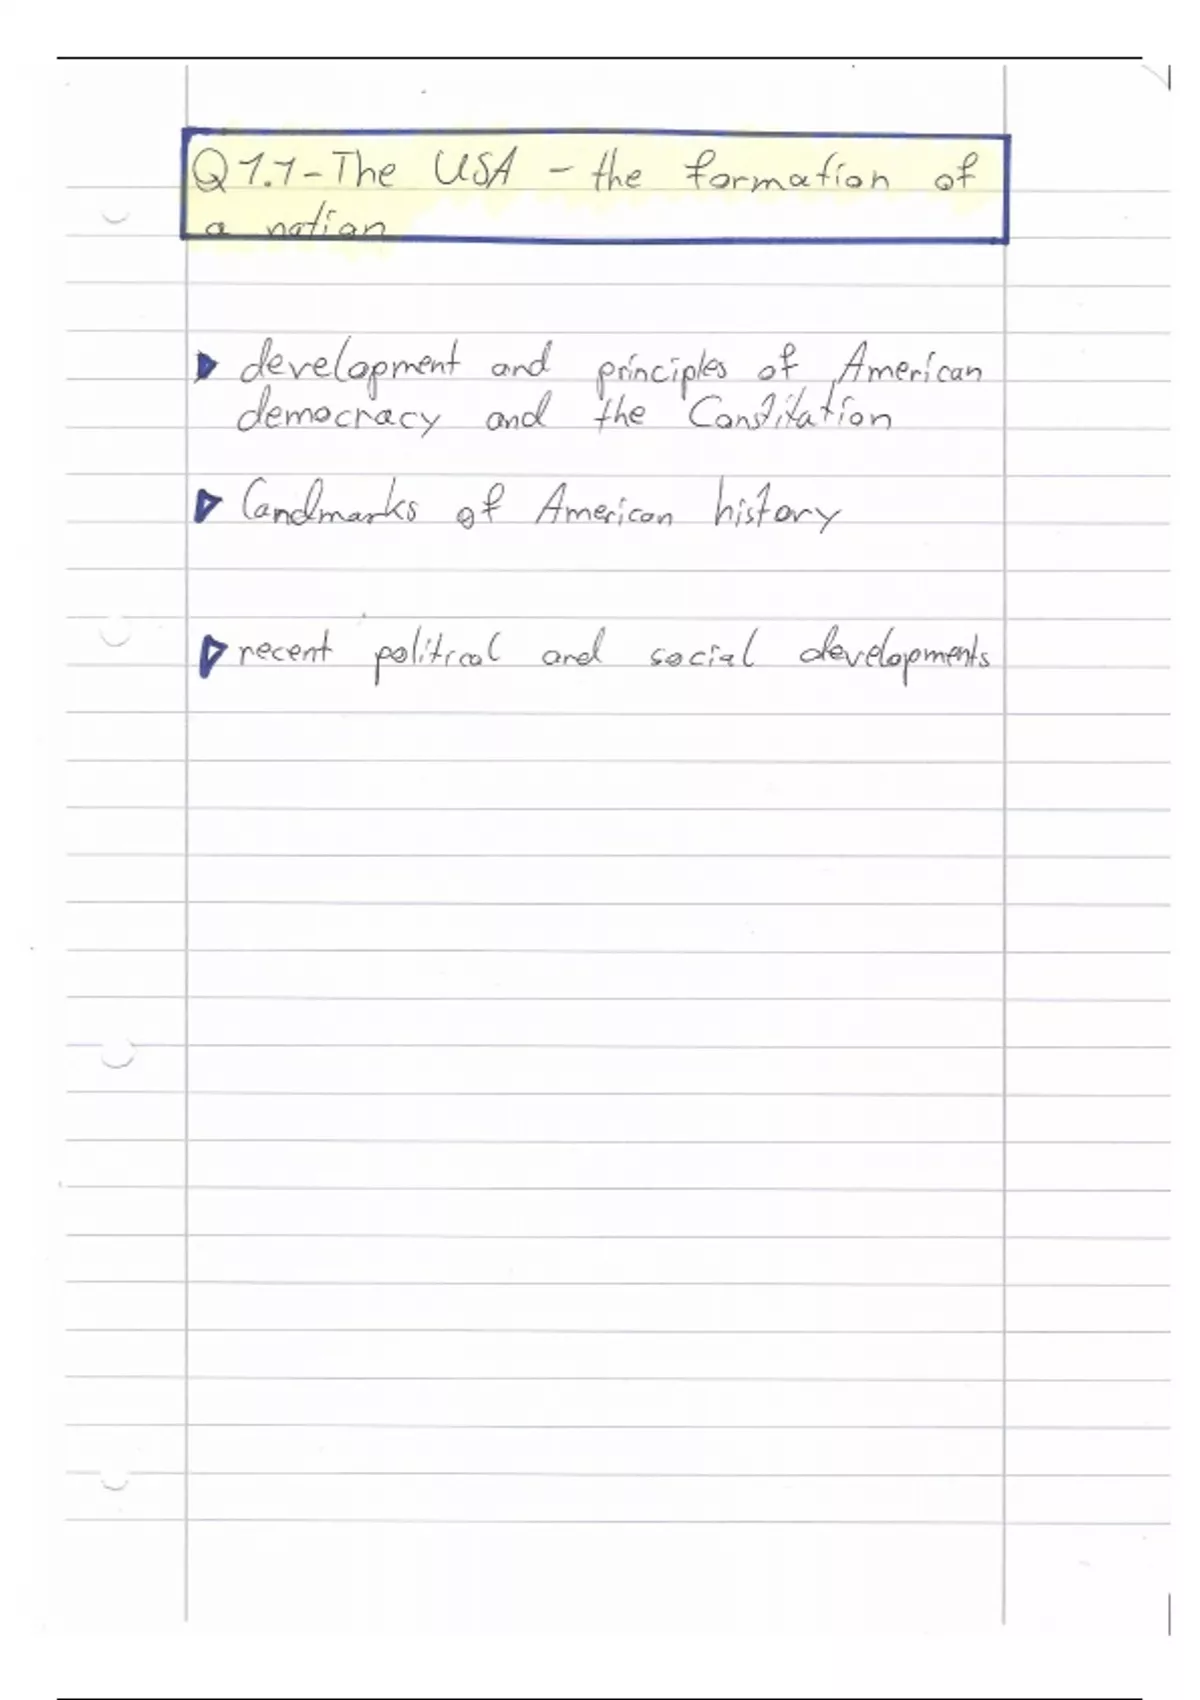 Q 1.1 - The USA - the formation of
a nation
development and principles of American
democracy and the Constitution
Landmarks of American history
recent political and social developments